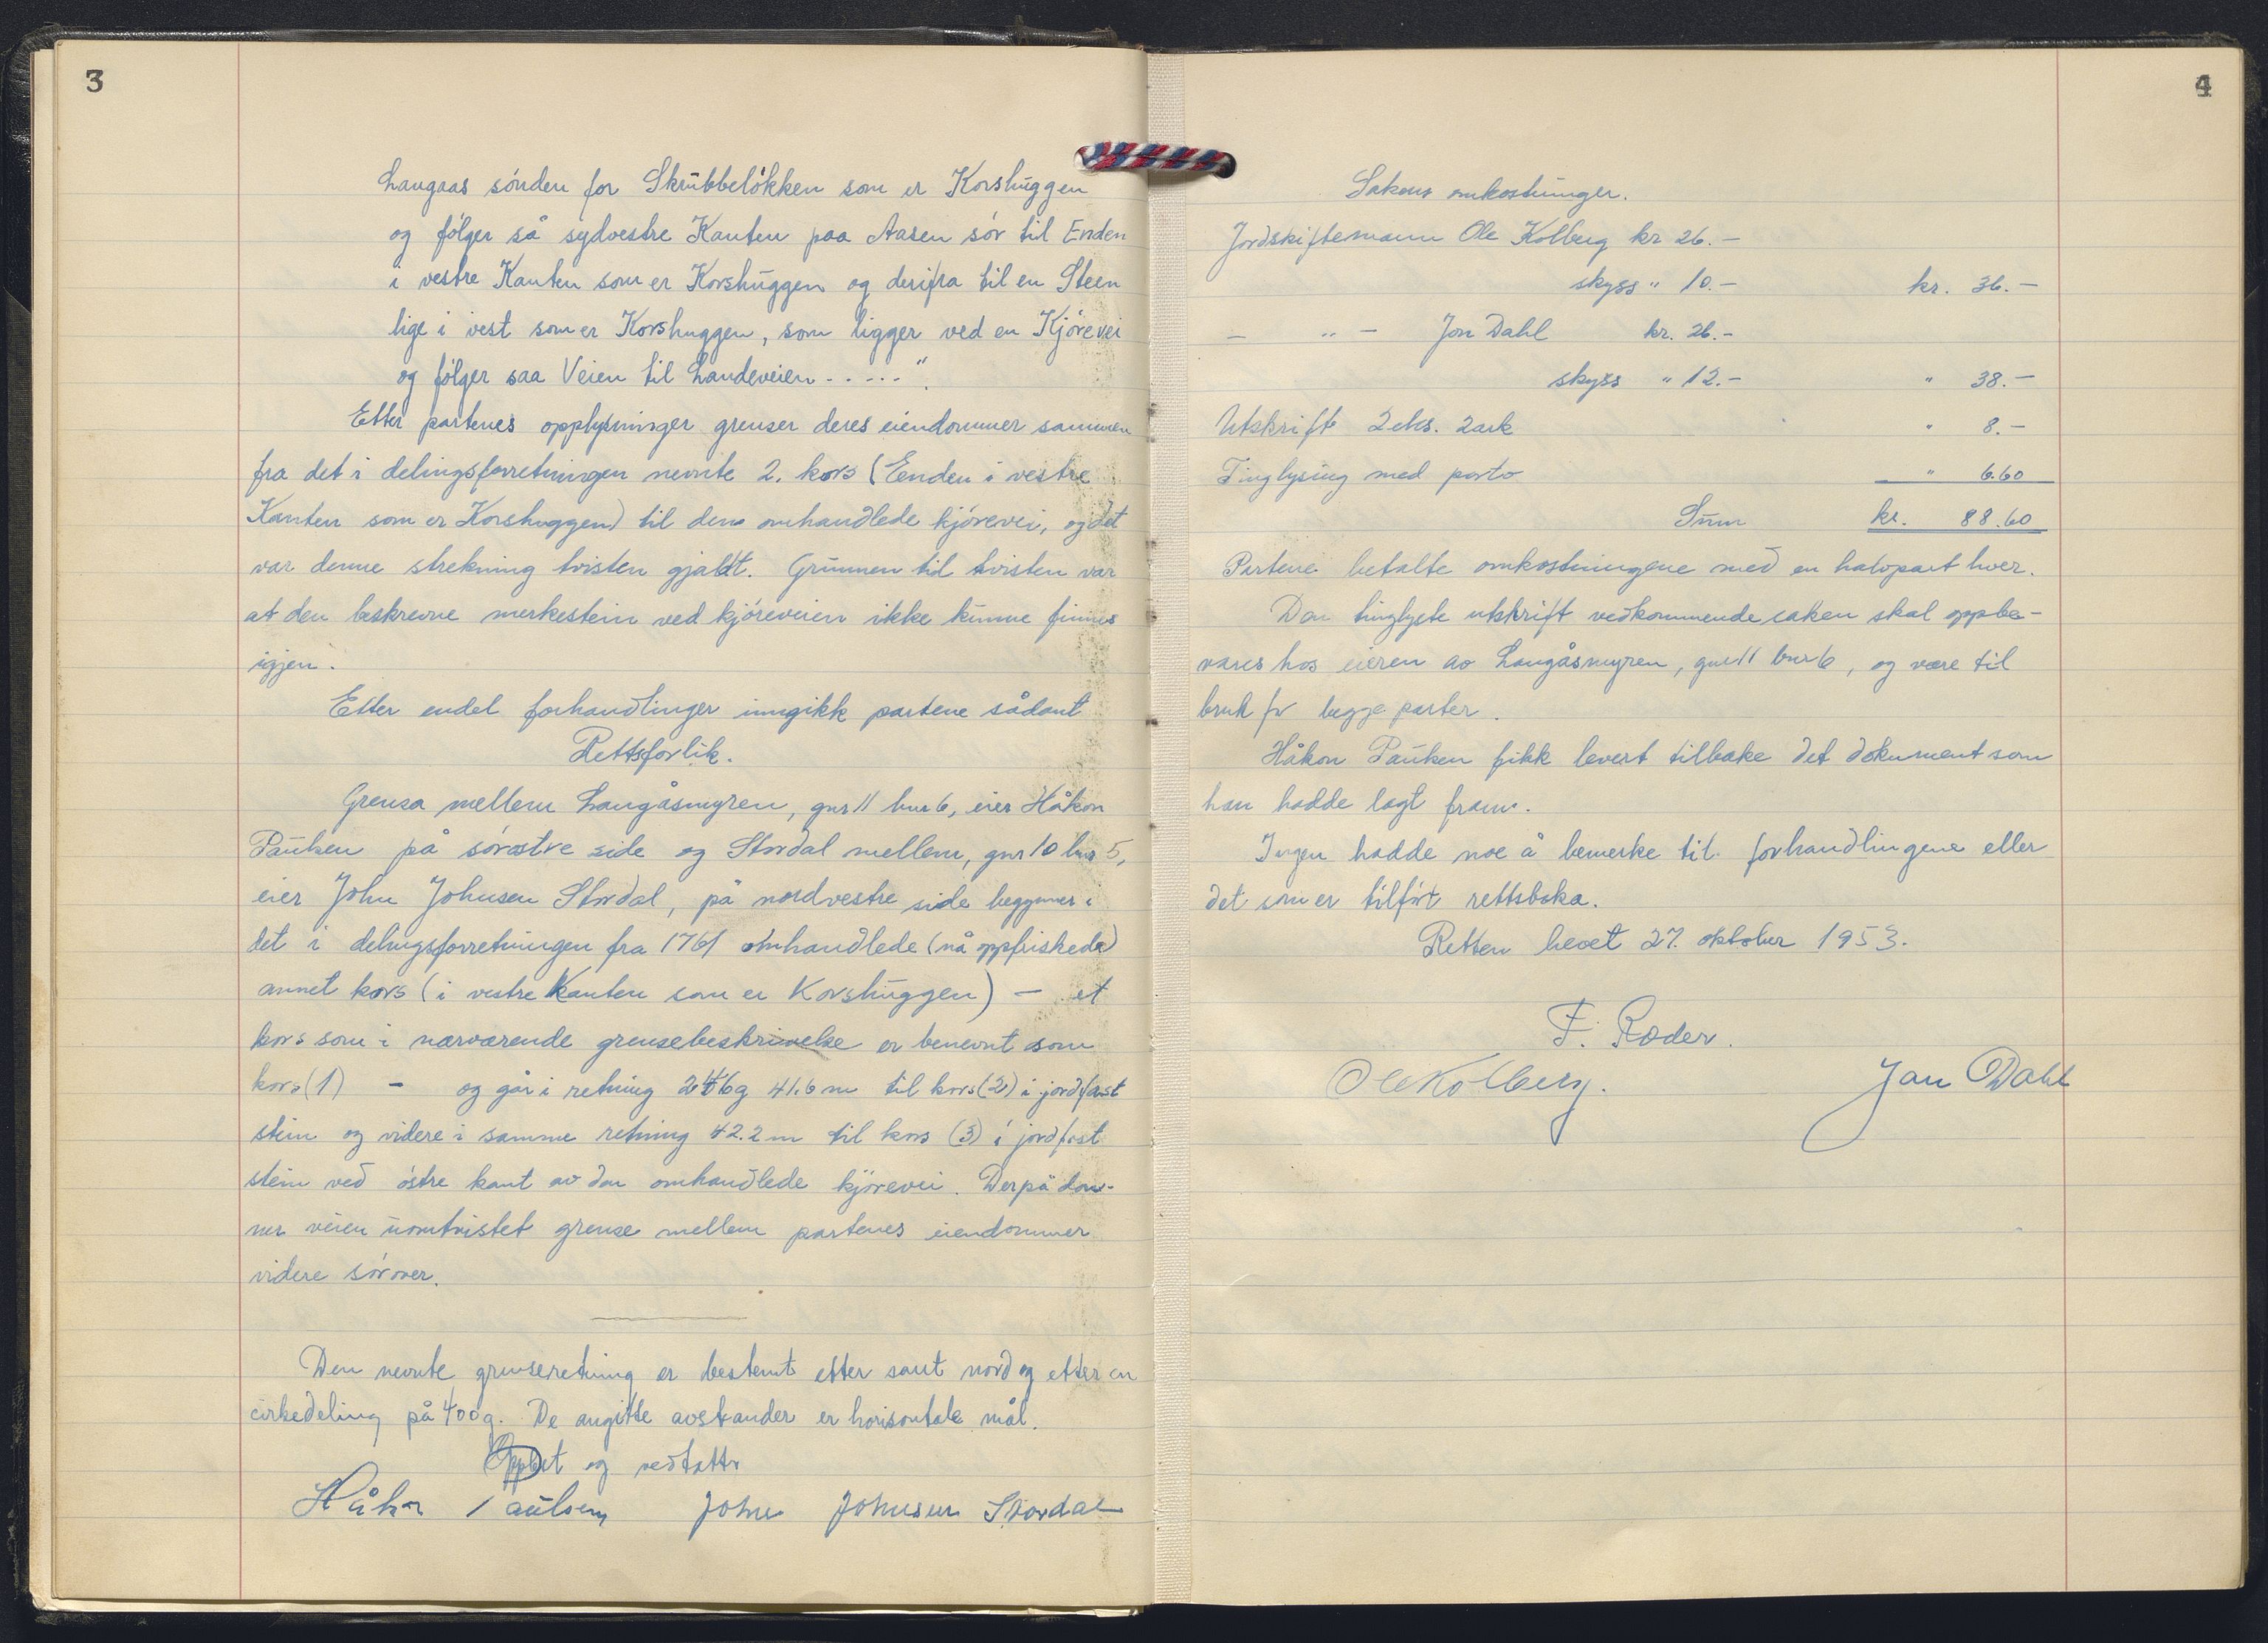 3
Langaas sönden for Skrubbelökken som er Korshuggen
og fölger så sydvestre Kanten paa Aasen sör til Enden
i vestre Kanten som er Korshuggen og derifra til en Steen
lige i vest som er Korshuggen, som ligger ved en Kjörevei
og fölger saa Veien til Landeveien....."
Etter partenes opplysninger grenser deres eiendommer sammen
fra det i delingsforretningen nevnte 2. kors (Enden i vestre
Kanten som er Korshuggen) til den omhandlede kjörevei, og det
var denne strekning tvisten gjaldt. Grunnen til tvisten var
at den beskrevne merkestein ved kjöreveien ikke kunne finnes
igjen.
Etter endel forhandlinger inngikk partene sådant
Rettsforlik.
Grensa mellem Langåsmyren, gnr 11 bnr 6, eier Håkon
på söröstre side og Stordal mellem, gnr 10 bnr 5,
eier John Johnsen Stordal, på nordvestre side begynner i
det i delingsforretningen fra 1761 omhandlede (nå oppfriskede)
annet kors (i vestre Kanten som er Korshuggen) - et
kors som i nærværende grensebeskrivelse er benevnt som
kors (1) - og går i retning 41.6 m til kors (2) i jordfast
stein og videre i samme retning 42.2 m til kors (3) i jordfast
stein ved östre kant av den omhandlede kjörevei. Derpå dan-
ner veien uomtvistet grense mellem partenes eiendommer
videre sörover.
Den nevnte grenseretning er bestemt etter sant nord og etter en
cirkeldeling på 400g. De angitte avstander er horisontale mål.
Opplest og vedtatt
Håkon Paulsen John Johnsen Stordal
4
Sakens omkostninger.
Jordskiftemann Ole Kolberg kr 26.-
skyss " 10.- kr. 36.-
- " - Jon Dahl kr. 26.-
skyss " 12.- " 38.-
Utskrift 2 eks. 2 ark " 8.-
Tinglysing med porto " 6.60
Sum kr. 88.60
Partene betalte omkostningene med en halvpart hver.
Den tinglyste utskrift vedkommende saken skal oppbe-
vares hos eieren av Langåsmyren, gnr 11 bnr 6, og være til
bruk for begge parter.
Håkon fikk levert tilbake det dokument som
han hadde lagt fram.
Ingen hadde noe å bemerke til forhandlingene eller
det som er tilfört rettsboka.
Retten hevet 27. oktober 1953.
F. Roder.
Ole Kolberg. Jon Dahl